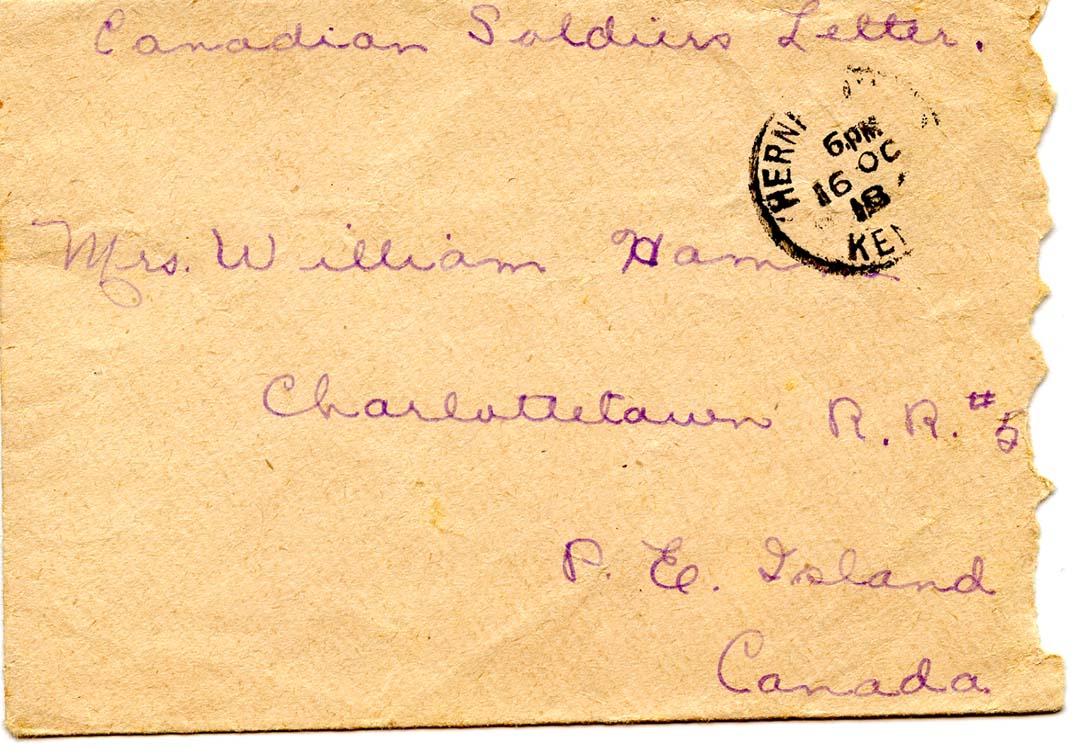 Canadian Soldiers Letter.
6 PM
16 OC
18
Mrs. William
Charlottetown R. R. #5
P. E. Island
Canada